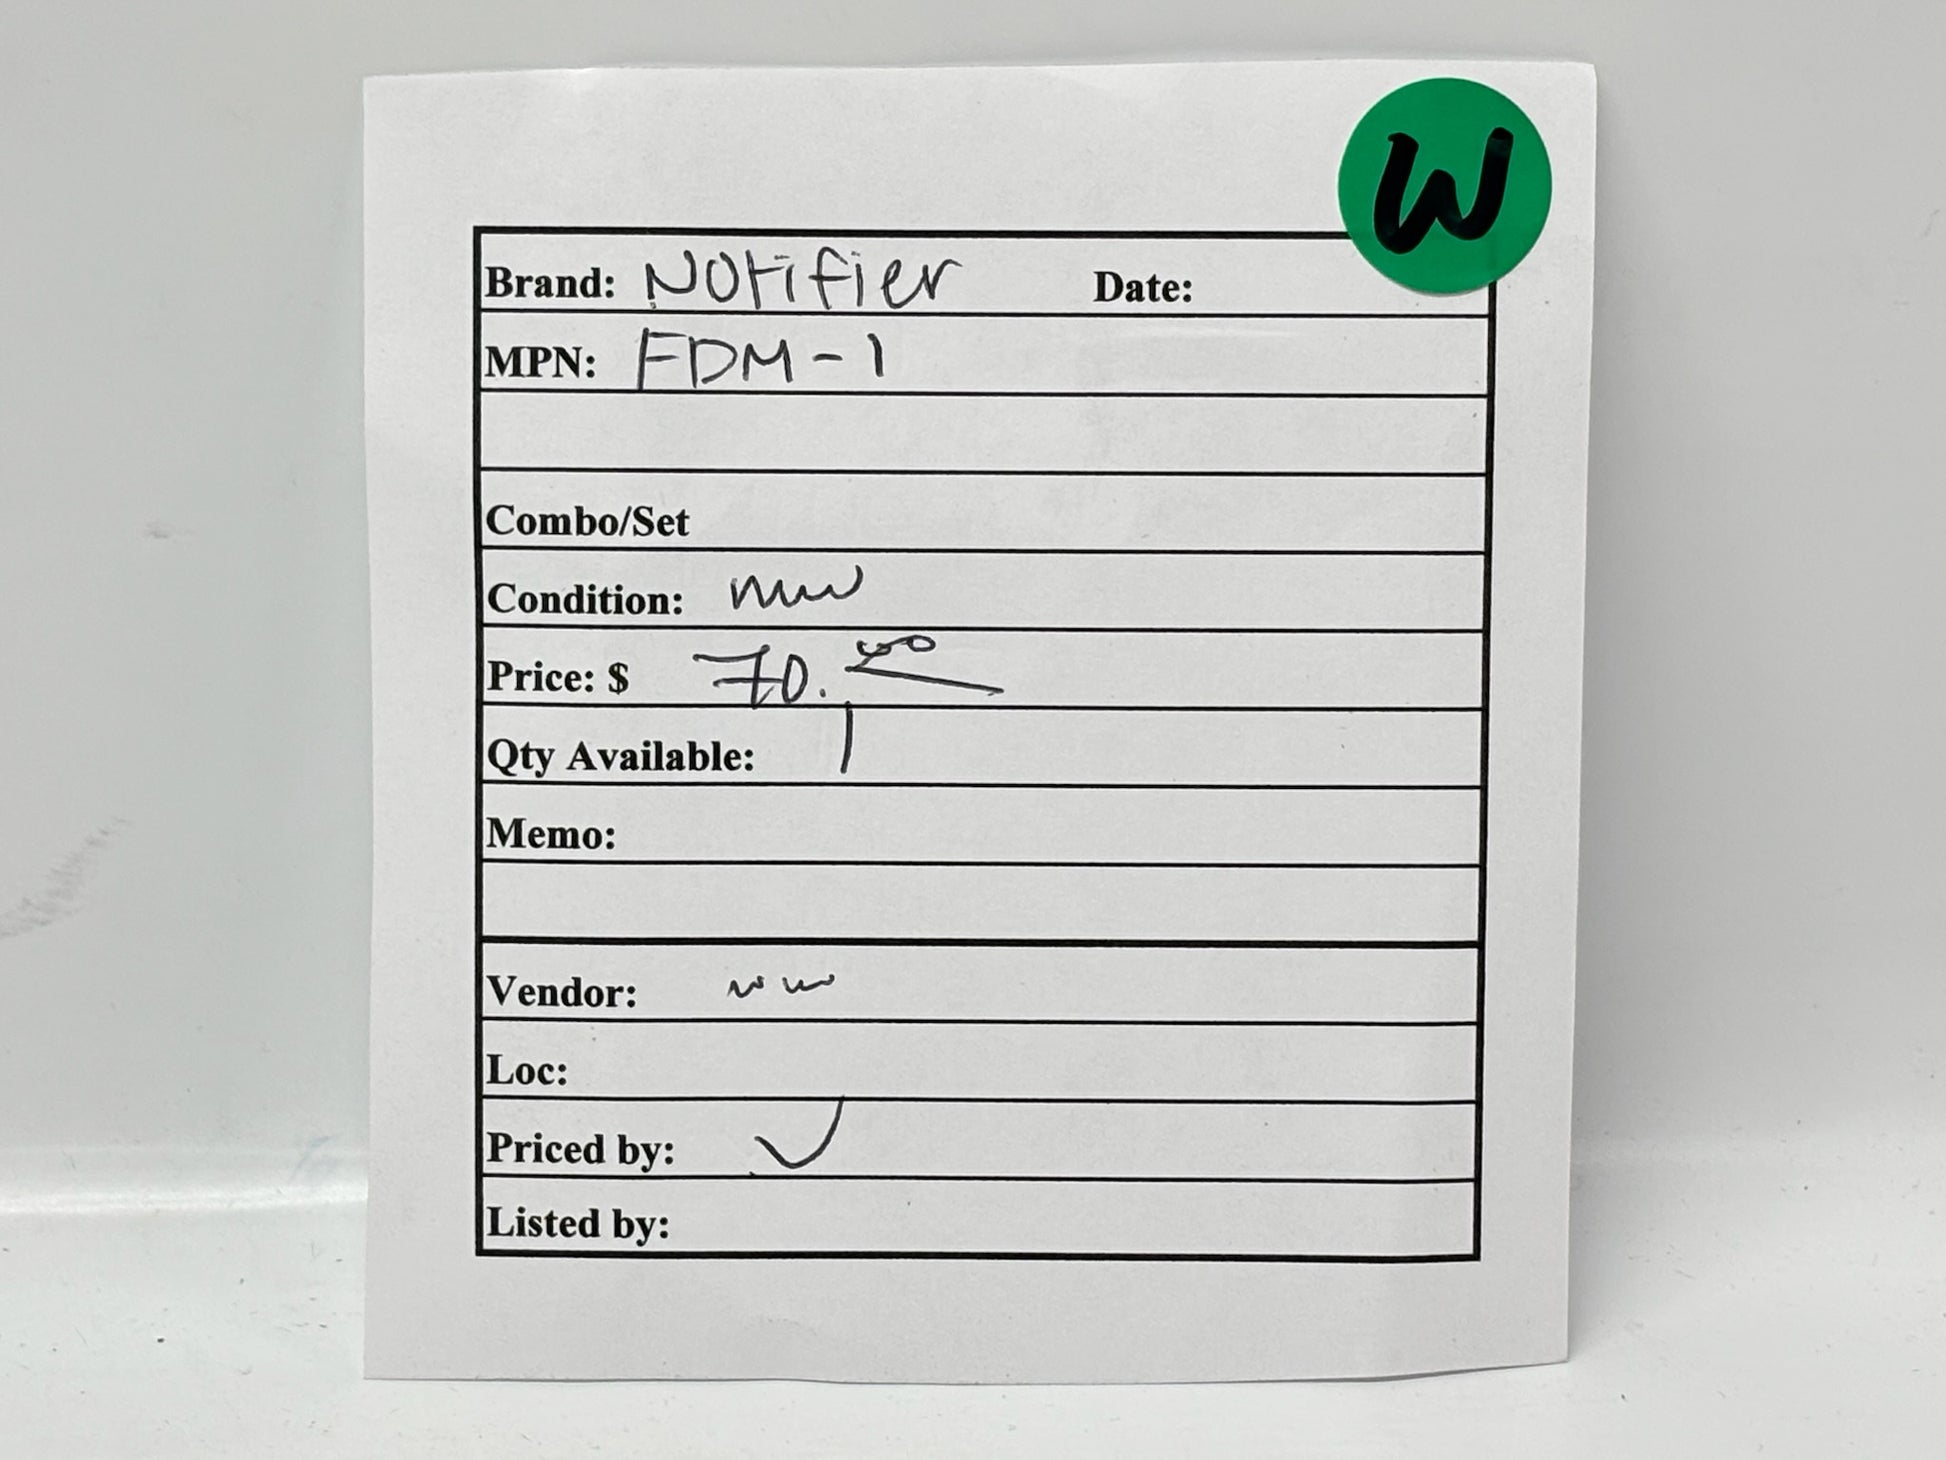 W
Brand: Notifier Date:
MPN: FDM-1
Combo/Set
Condition: new
Price: $ 70.00
Qty Available: 1
Memo:
Vendor:
Loc:
Priced by:
Listed by: